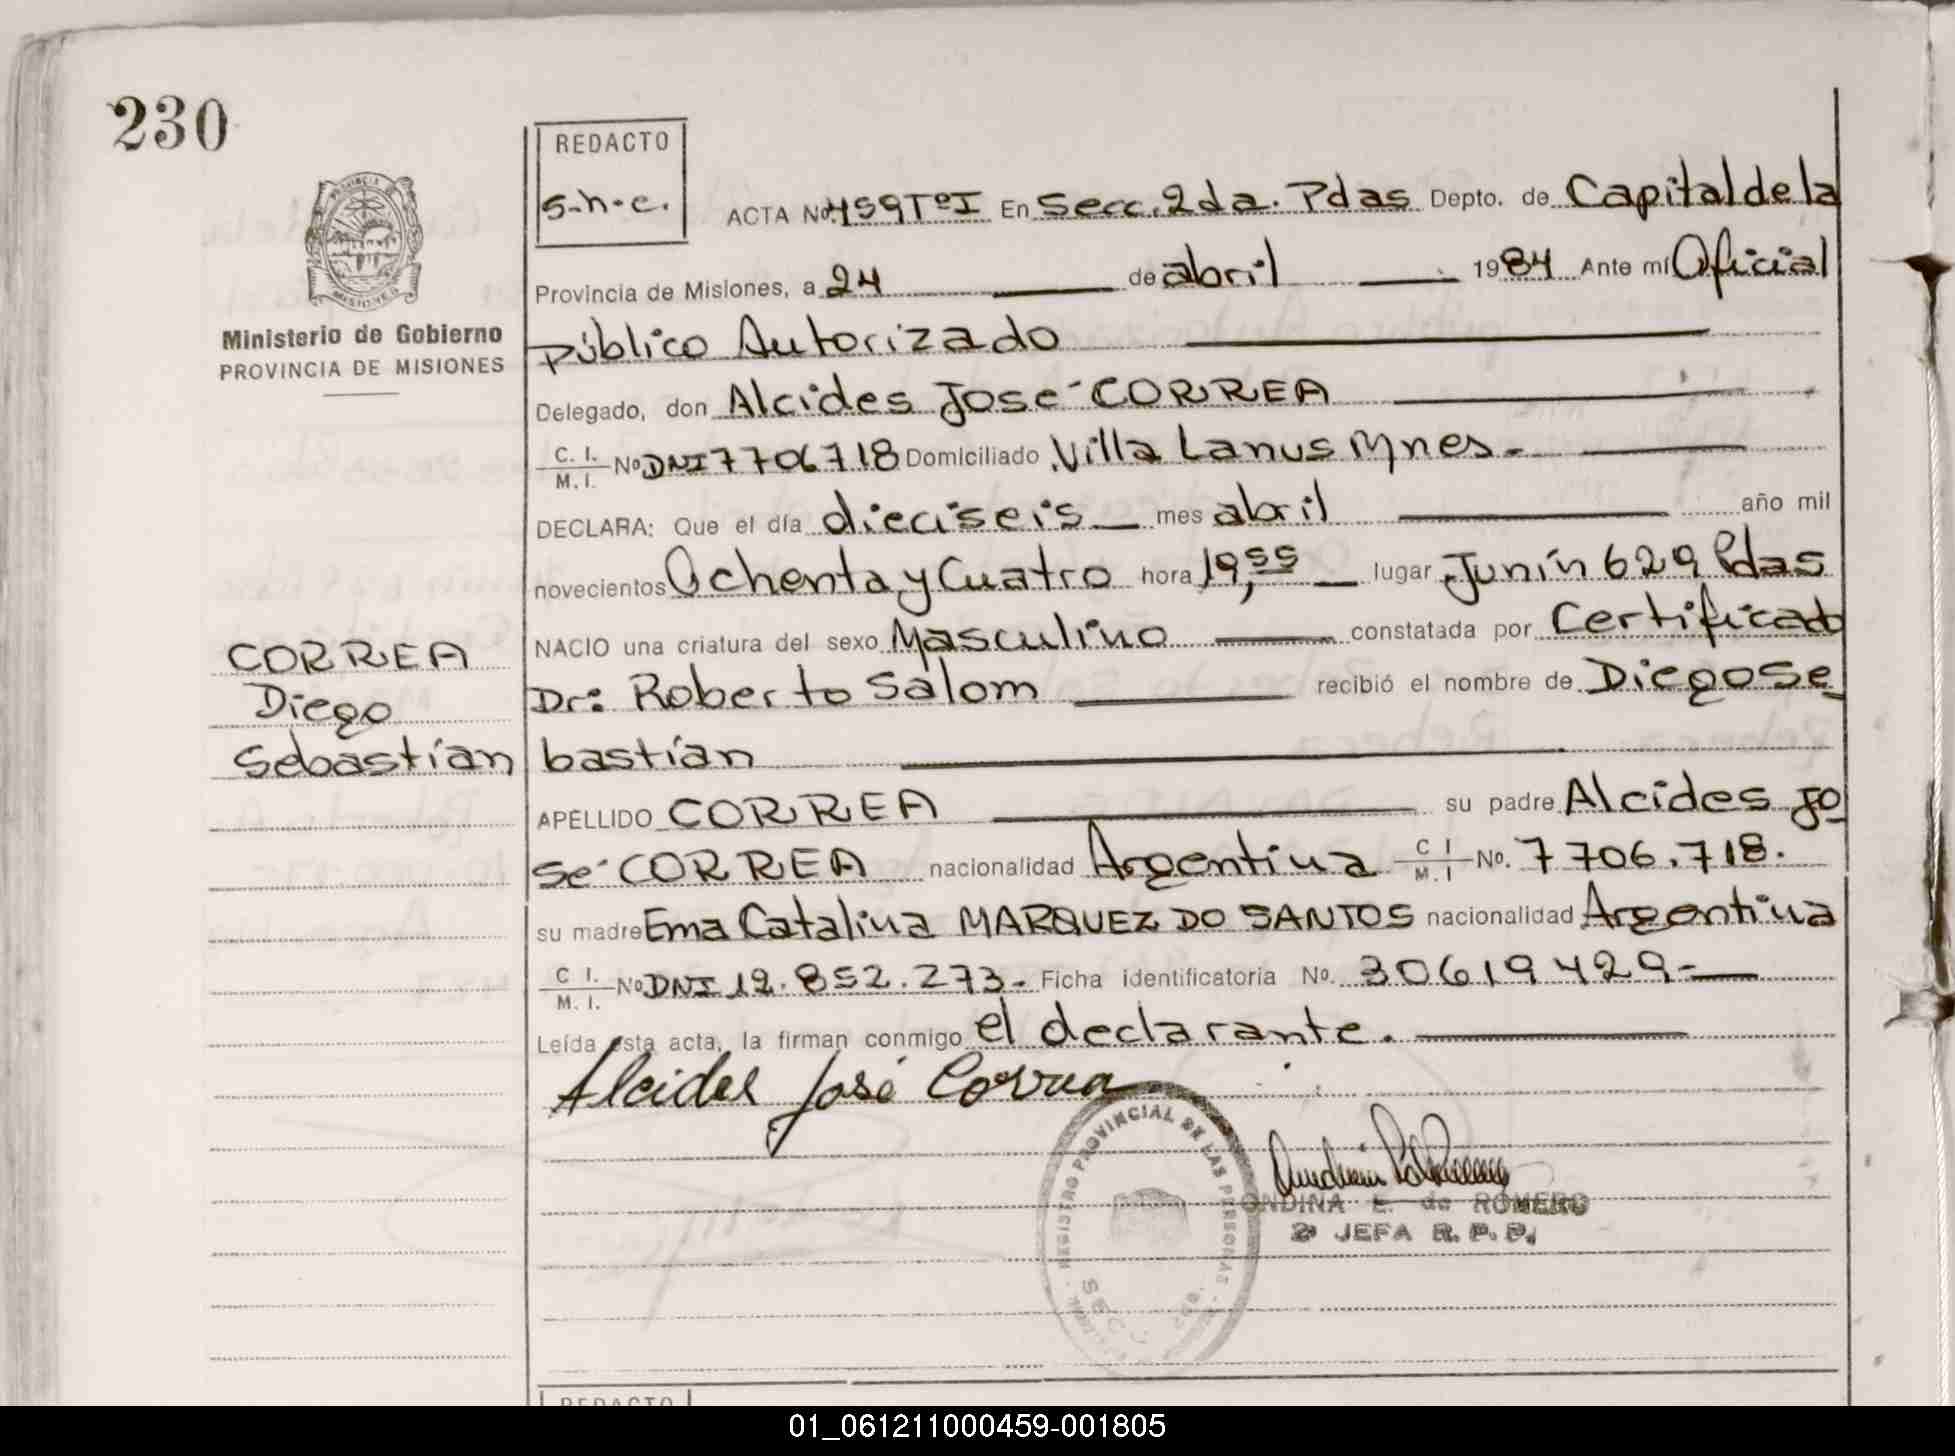 230
REDACTO
s-h-c.
ACTA No. 459TºI En Secc. 2da. Pdas Depto. de Capital de la
Provincia de Misiones, a 24 de abril 1984 Ante mí Oficial
Ministerio de Gobierno
PROVINCIA DE MISIONES
público Autorizado
Delegado, don Alcides José CORREA
C. I. M. I. No DNI 7706718 Domiciliado Villa Lanus Mnes.-
DECLARA: Que el día dieciseis mes abril año mil
novecientos Ochenta y Cuatro hora 19,55 lugar Junín 629 Pdas
NACIO una criatura del sexo Masculino constatada por Certificado
CORREA
Diego
Sebastían
Dr: Roberto Salom recibió el nombre de Diego Se
bastían
APELLIDO CORREA su padre Alcides Jo
sé CORREA nacionalidad Argentina C I M. I No. 7706.718.
su madre Ema Catalina MARQUEZ DO SANTOS nacionalidad Argentina
C I. M. I. No DNI 12.852.273- Ficha identificatoria No. 30619429-
Leída esta acta, la firman conmigo el declarante.
Alcides José Correa
REGISTRO PROVINCIAL DE LAS PERSONAS
ONDINA E. de ROMERO
2º JEFA R. P. P.
REDACTO
01_061211000459-001805